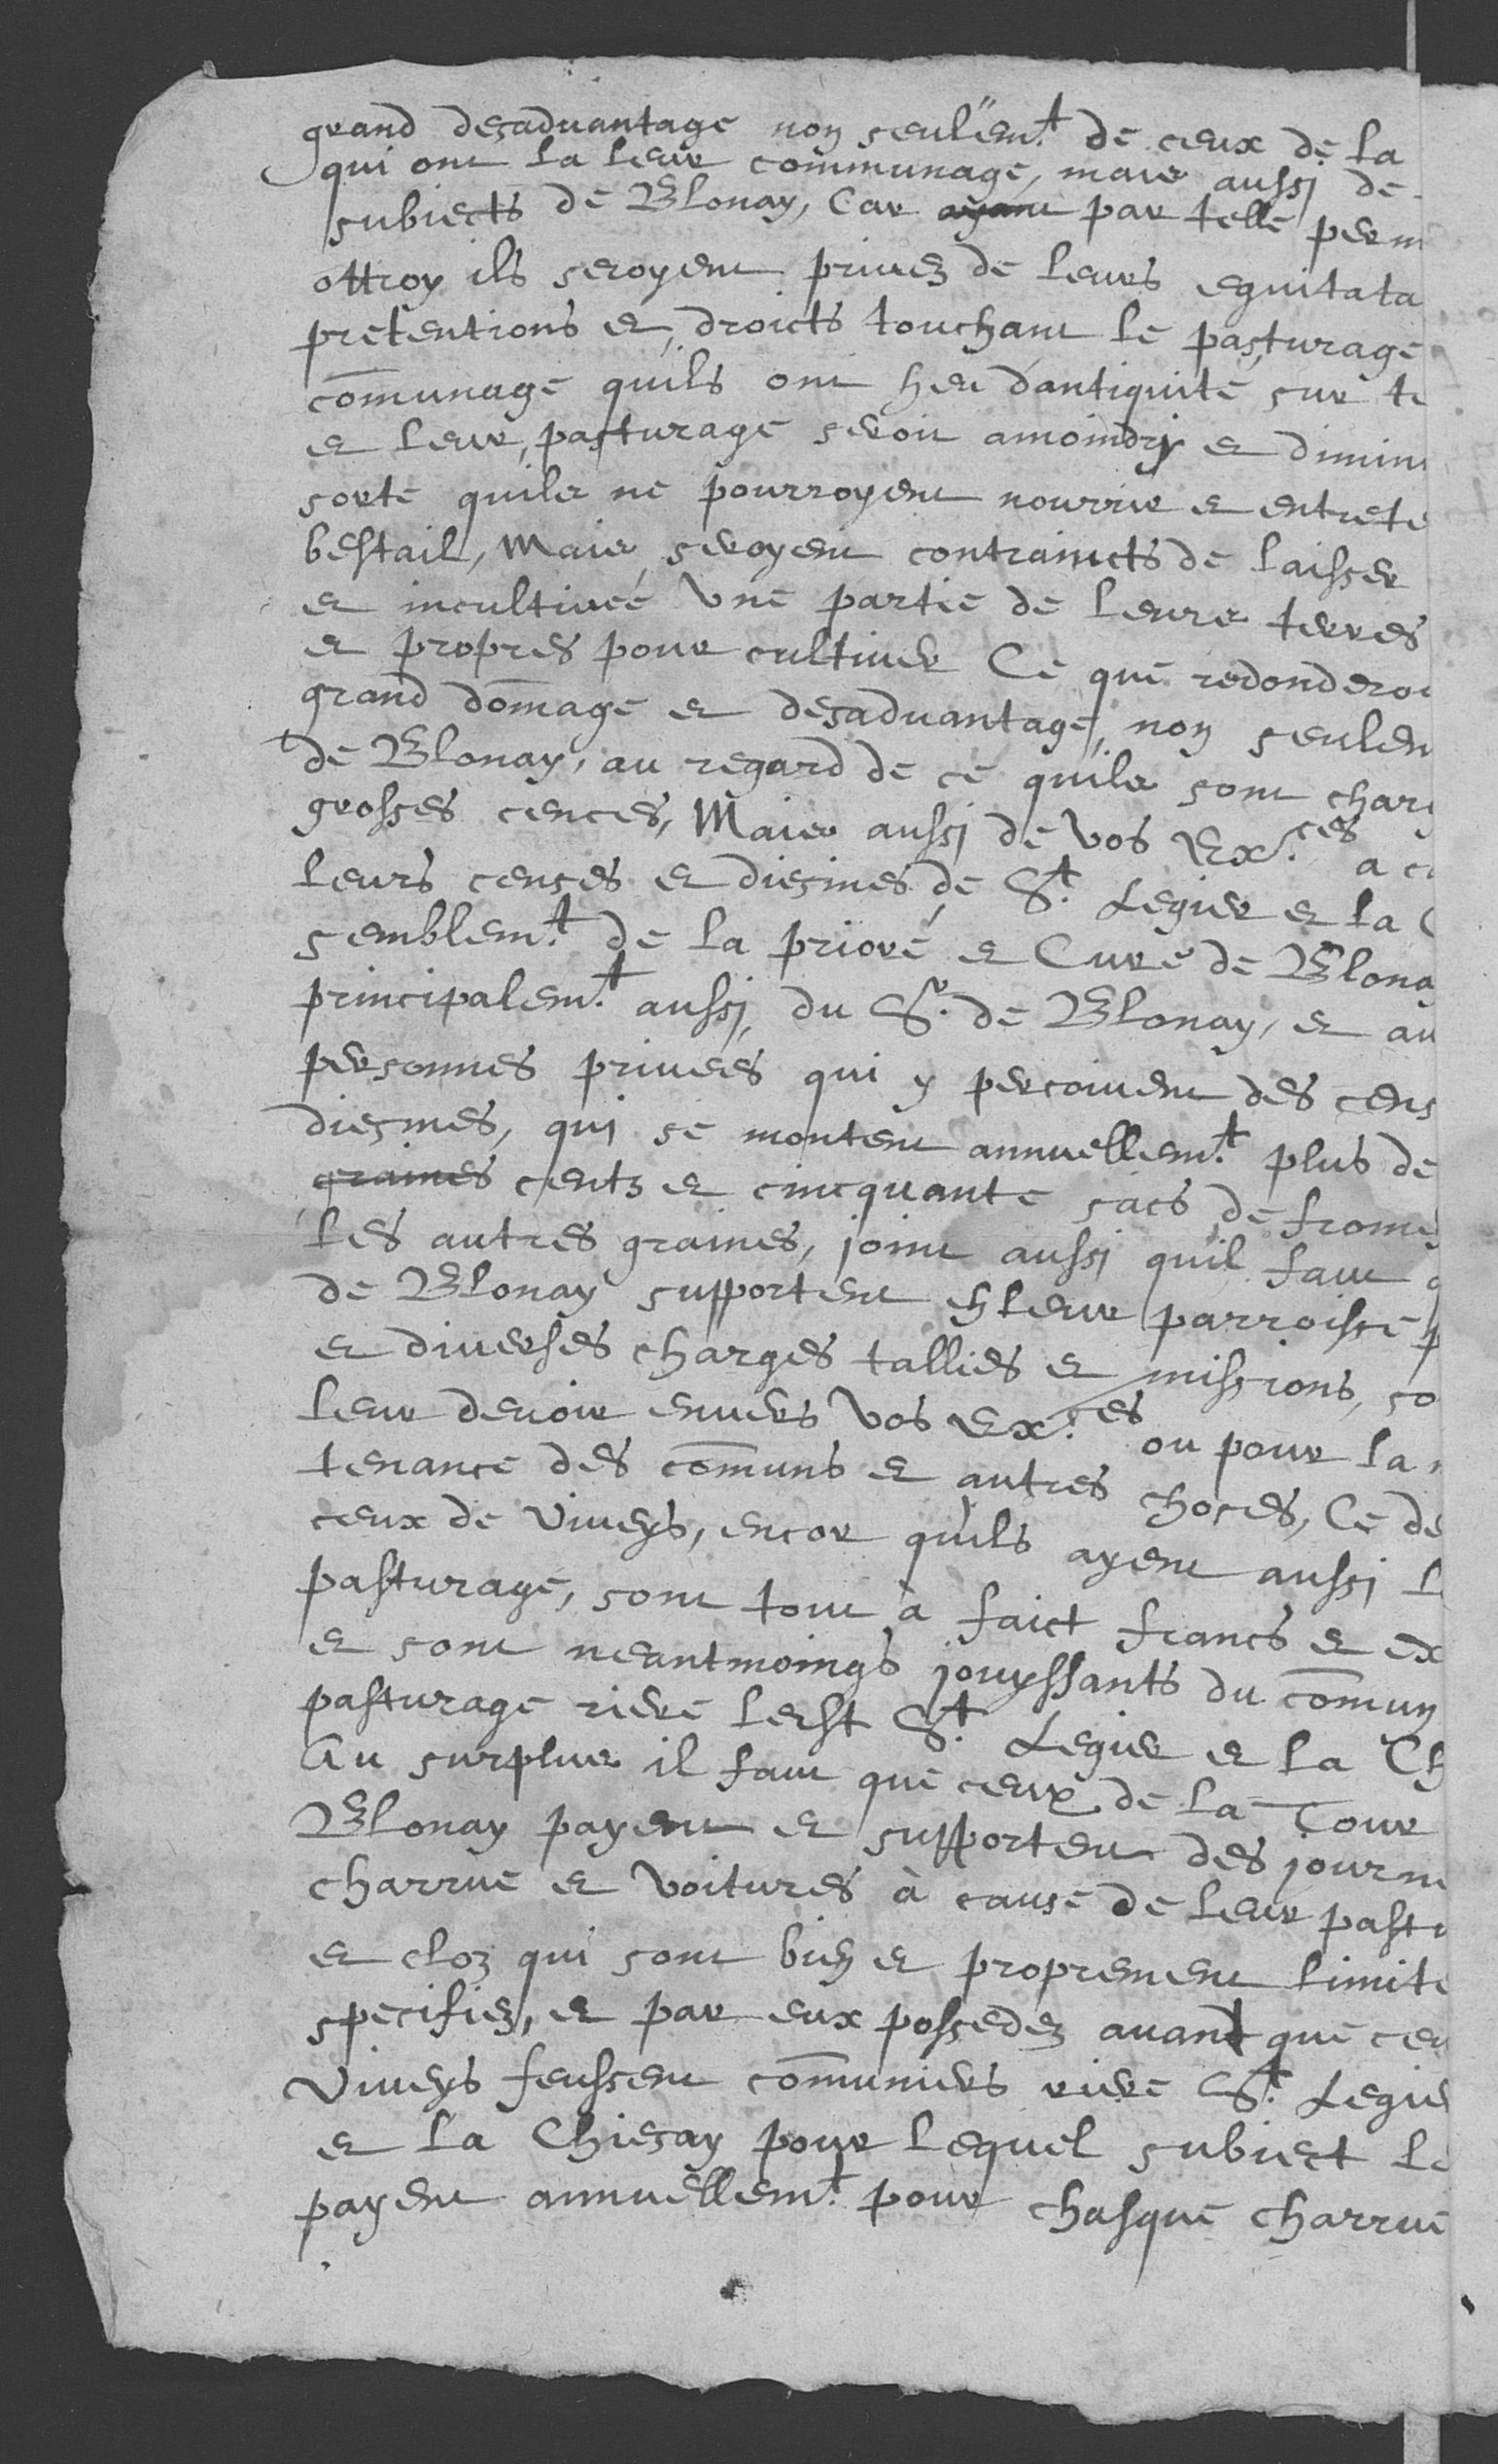 grand desaduantage non seulem.t de ceux de la
qui ont la leur communage, mais aussi de
subiects de Blonay, Car ayant par telle perm
ottroy ils seroyent priuez de leurs equitata
pretentions et droicts touchant le pasturage
com̄unage quils ont heu dantiquité sur te
et leur pasturage seroit amoindry et diminu
sorte quils ne pourroyent nourrir et entrete
bestail, Mais seroyent contraincts de laisser
et incultiueé vne partie de leurs terres
et propres pour cultiuer Ce que redonderoi
grand dom̄age et desaduantage, non seulem
de Blonay, au regard de ce quils sont charg
grosses cences, Mais aussi de vos Ex.ces a c
leurs censes et diesmes de S.t Legier et la C
semblem.t de la prioré et Cure de Blonay
principalem.t aussi du S.r de Blonay, et au
personnes priuees qui y percoiuent des cens
diesmes, qui se montent annuellem.t plus de
graines centz et cincquante sacs de frome
les autres graines, joint aussi quil faut q
de Blonay supportent eh leur parroisse p
et diuerses charges tallies et missions, so
leur deuoir enuers vos Ex.ces ou pour la m
tenance des com̄uns et autres choses, Ce de
ceux de Viueys, encor quils ayent aussi l
pasturage, sont tout à faict francs et ex
et sont neantmoings jouyssants du com̄un
pasturage riere lerst S.t Legier et la Ch
Au surplus il faut que ceux de la Tour
Blonay payent et supportent des journe
charrue et voitures à cause de leur pastu
et cloz qui sont bien et proprement limite
specifiez, et par eux possedez auant que ceu
Viueys feussent com̄uniers riere S.t Legier
et la Chiesay pour lequel subiect le
payent annuellem.t pour chasque charrue